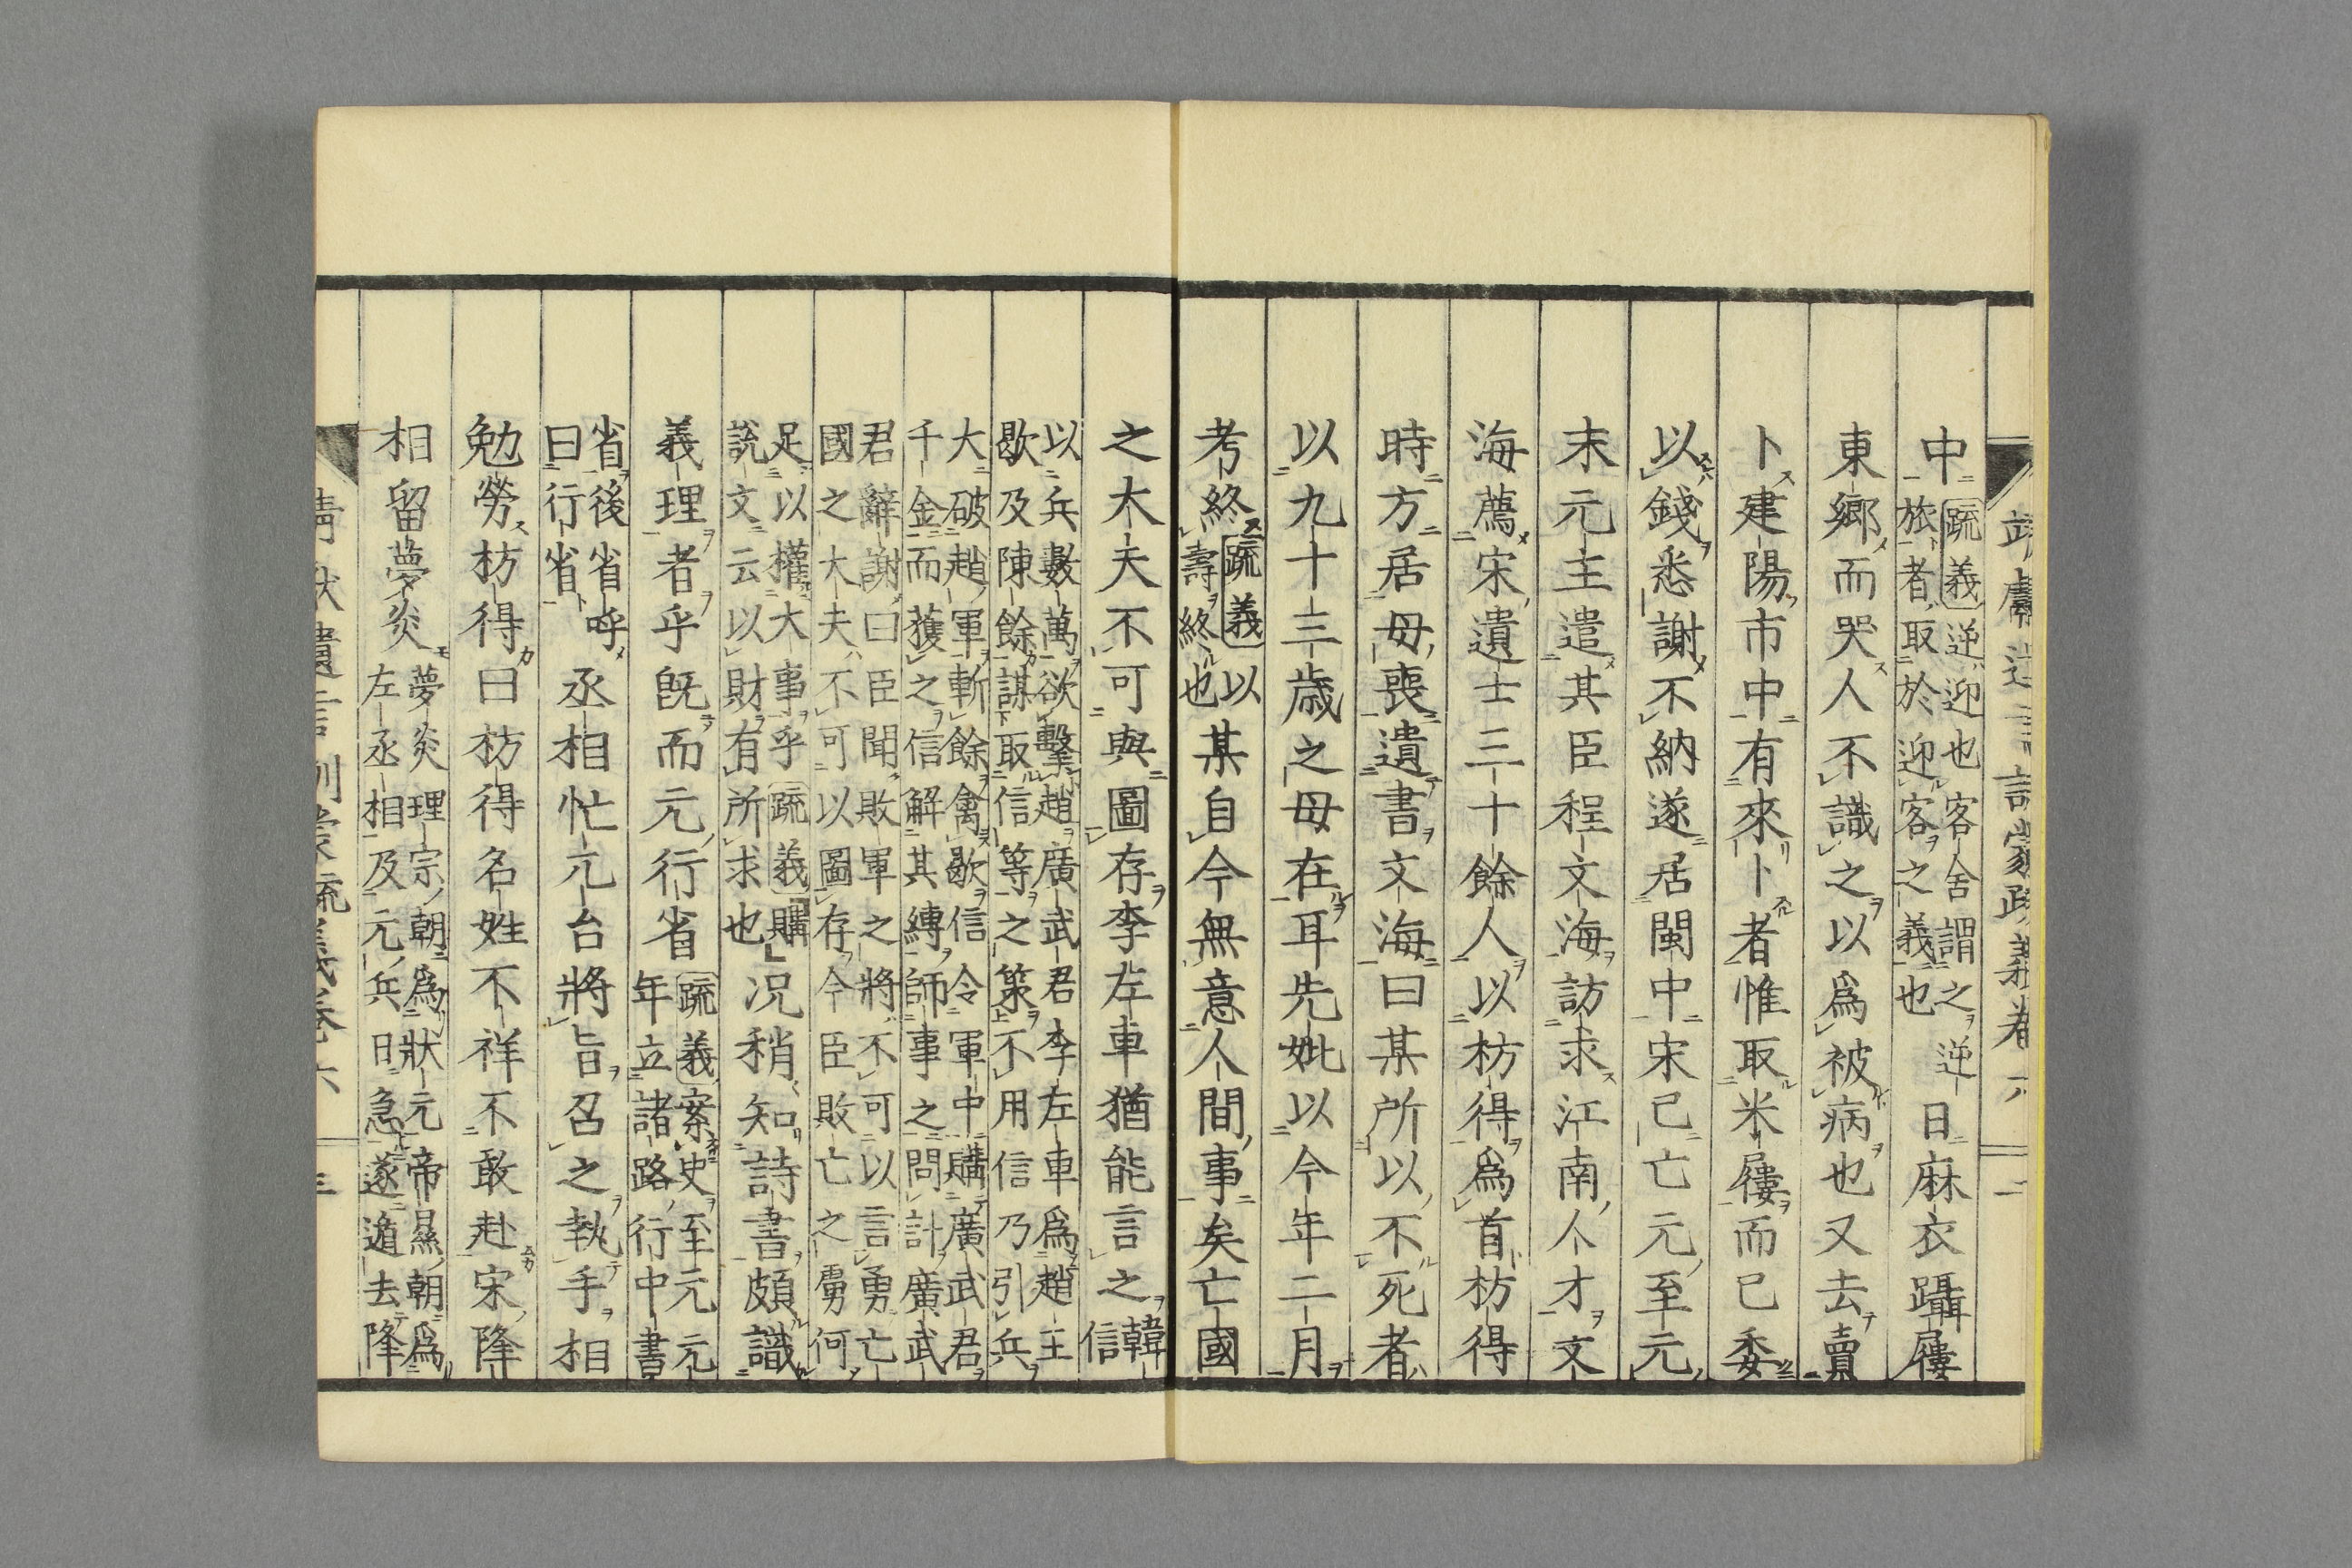 靖獻遺言訓蒙疏義卷六
中疏義逆迎也客舍謂之逆
旅者取於迎客之義也日麻衣躡屨
東鄉而哭人不識之以爲被病也又去賣
卜建陽市中有來卜者惟取米屨而已委
以錢悉謝不納遂居閩中宋已亡元至元
末元主遣其臣程文海訪求江南人才文
海薦宋遺士三十餘人以枋得爲首枋得
時方居母喪遺書文海曰某所以不死者
以九十三歲之母在耳先妣以今年二月
考終疏義以
壽終也某自今無意人間事矣亡國
之大夫不可與圖存李左車猶能言之韓
信
以兵數萬欲擊趙廣武君李左車爲趙王
歇及陳餘謀取信等之策不用信乃引兵
大破趙軍斬餘禽歇信令軍中購廣武君
千金而獲之信解其縛師事之問計廣武
君辭謝曰臣聞敗軍之將不可以言勇亡
國之大夫不可以圖存今臣敗亡之虜何
足以權大事乎疏義購
說文云以財有所求也況稍知詩書頗識
義理者乎既而元行省疏義案史至元元
年立諸路行中書
省後省呼
曰行省丞相忙元台將旨召之執手相
勉勞枋得曰枋得名姓不祥不敢赴宋降
相留夢炎夢炎理宗朝爲狀元帝㬎朝爲
左丞相及元兵日急遂遁去降
靖獻遺言訓蒙疏義卷六 三